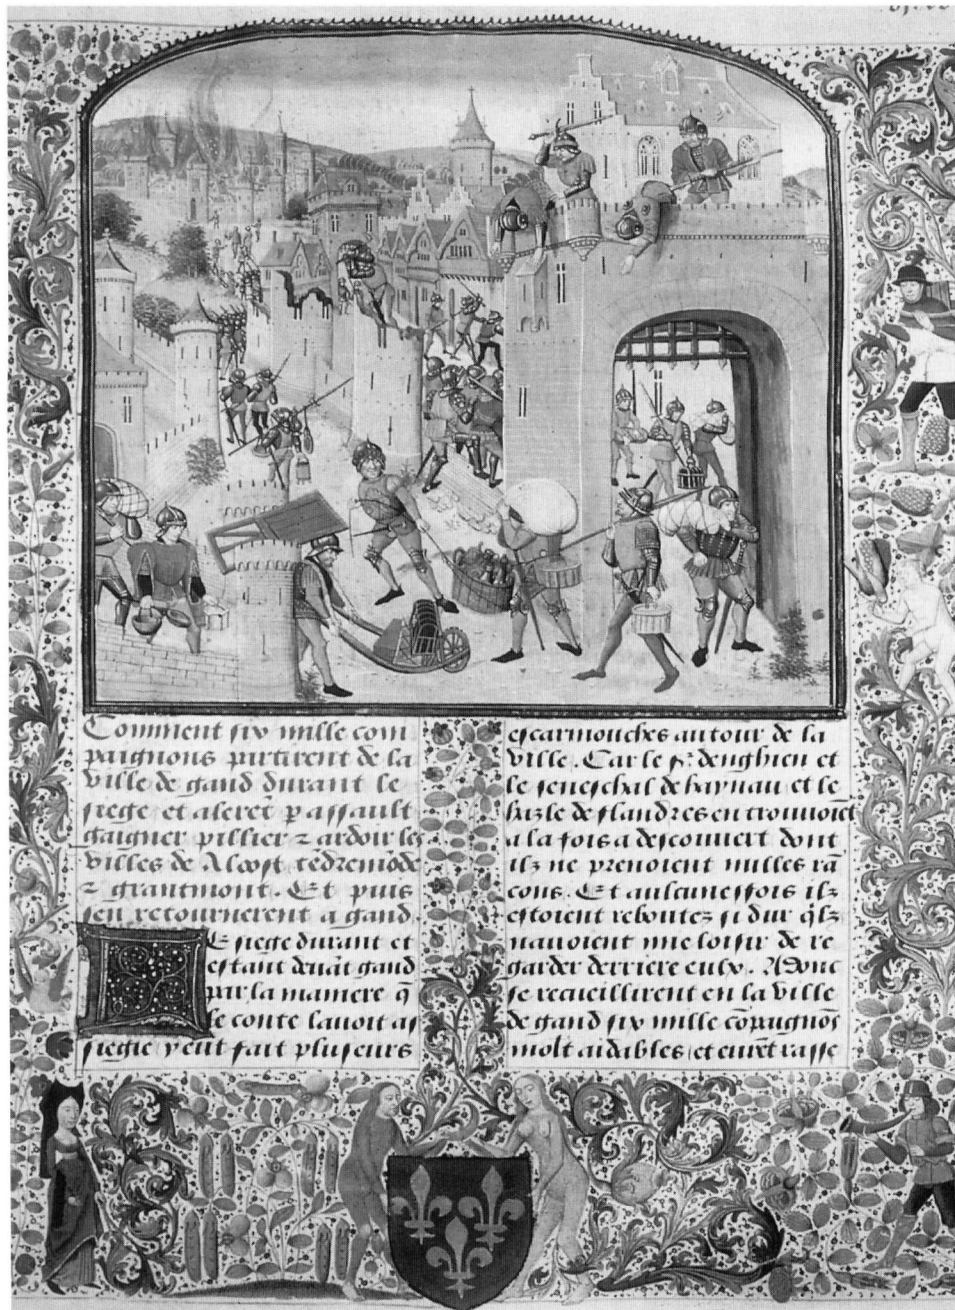 Comment six mille com
paignons partirent de la
ville de gand durant le
siege et alerēt p assault
gaigner pillier ⁊ ardoir les
villes de Aloost tēdremōde
⁊ grantmont. Et puis
sen retournerent a gand.
Le siege durant et
estant deuāt gand
par la maniere q̄
le conte lauoit as
siegie y eut fait pluseurs
escarmouches autour de la
ville. Car le sʳ denghien et
le seneschal de haynau et le
hazle de flandres en trouuoiēt
a la fois a descouuert dont
ilz ne prenoient nulles rā
cons. Et aulcuneffois ilz
estoient reboutez si dur q̄lz
nauoient mie loisir de re
garder derriere eulx. Adonc
se recueillirent en la ville
de gand six mille cōpaignōs
molt aidables et eurēt rasse